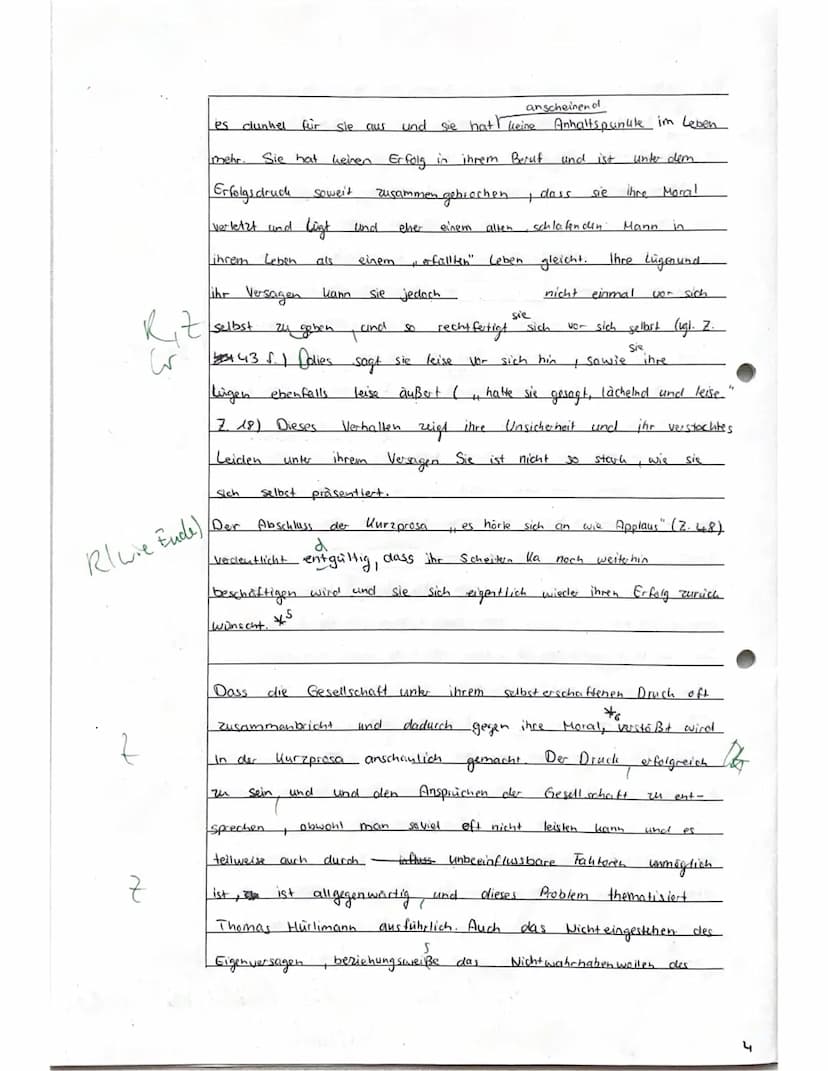 anscheinend
es dunkel für sie aus und sie hat keine Anhaltspunkte im Leben
mehr. Sie hat keinen Erfolg in ihrem Beruf und ist unter dem
Erfolgsdruck soweit zusammengebrochen, dass sie ihre Moral
verletzt und lügt und eher einem alten, schlafenden Mann in
ihrem Leben als einem „erfüllten" Leben gleicht. Ihre Lügen und
ihr Versagen kann sie jedoch nicht einmal vor sich
sie
R, Z selbst zu geben, und so rechtfertigt sich vor sich selbst (vgl. Z.
sie
Gr 43 f.) dies sagt sie leise vor sich hin, sowie ihre
Lügen ebenfalls leise äußert („hatte sie gesagt, lächelnd und leise"
Z. 18) Dieses Verhalten zeigt ihre Unsicherheit und ihr verstecktes
Leiden unter ihrem Versagen Sie ist nicht so stark, wie sie
sich selbst präsentiert.
R (wie Ende) Der Abschluss der Kurzprosa „es hörte sich an wie Applaus" (Z. 48)
d
verdeutlicht entgültig, dass ihr Scheitern sie noch weiterhin
beschäftigen wird und sie sich eigentlich wieder ihren Erfolg zurück
wünscht. *5
Dass die Gesellschaft unter ihrem selbsterschaffenen Druck oft
*6
zusammenbricht und dadurch gegen ihre Moral, verstößt wird
Z in der Kurzprosa anschaulich gemacht. Der Druck, erfolgreich
zu sein, und und den Ansprüchen der Gesellschaft zu ent-
sprechen, obwohl man soviel oft nicht leisten kann und es
teilweise auch durch unbeeinflussbare Faktoren unmöglich
Z ist, ist allgegenwärtig, und dieses Problem thematisiert
Thomas Hürlimann ausführlich. Auch das Nichteingestehen des
s
Eigenversagen, beziehungsweiße das Nichtwahrhabenwollen des
4